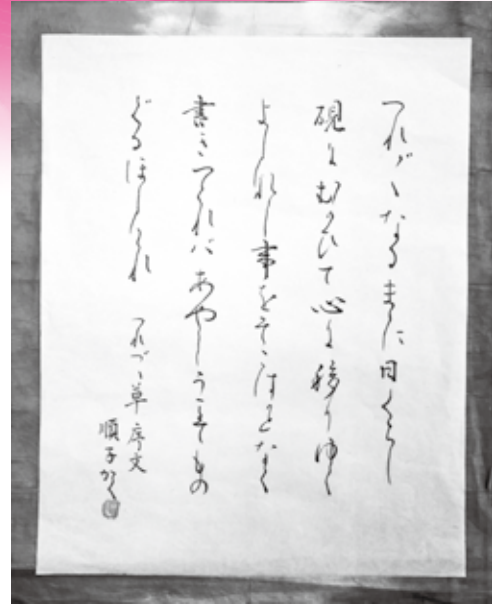 つれづれなるまゝに日くらし
硯にむかひて心に移りゆく
よしなし事をそこはかとなく
書きつくればあやしうこそもの
ぐるほしけれ
つれづれ草序文
順子かく